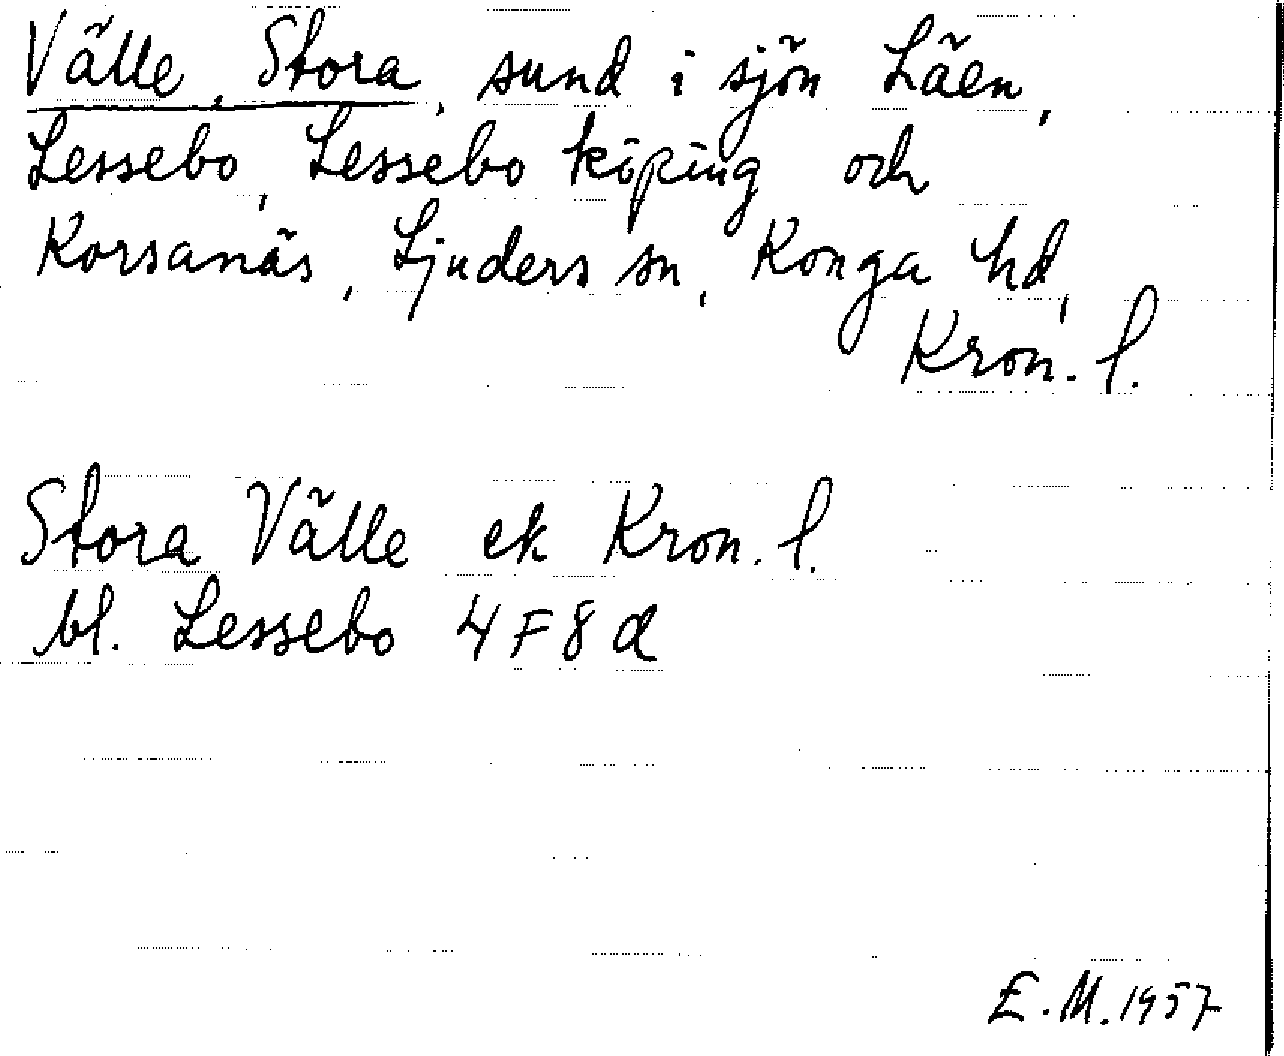 Välle, Stora, sund i sjön Läen,
Lessebo, Lessebo köping och
Korsanäs, Ljuders sn, Konga hd,
Kron. l.
Stora Välle ek Kron. l.
bl. Lessebo 4F8d
E.M. 1957